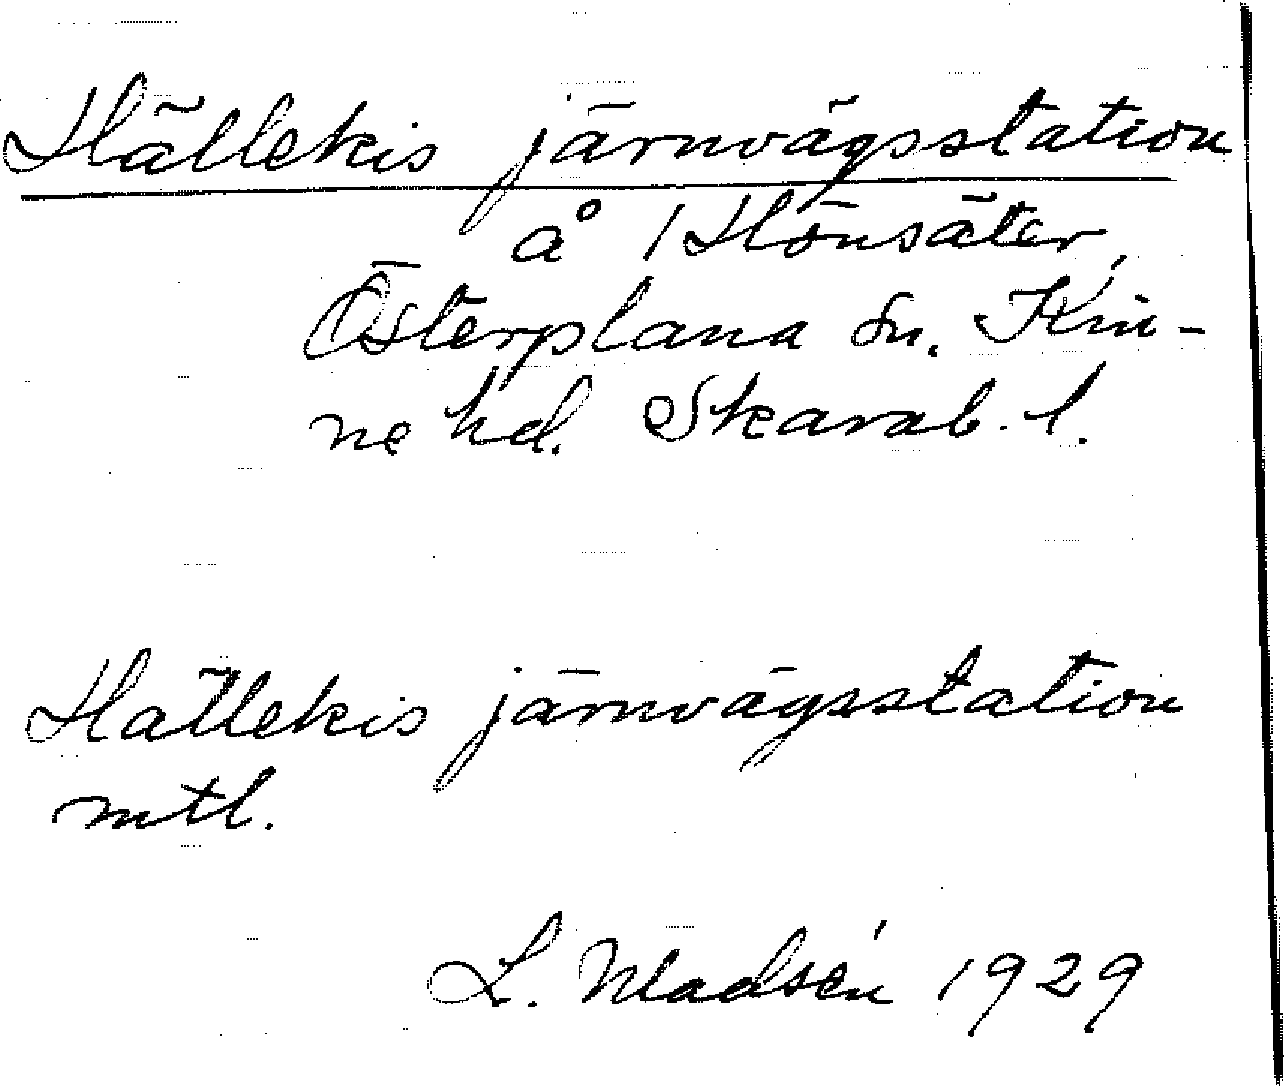 Hällekis järnvägsstation
å 1 Hönsäter,
Österplana sn. Kin-
ne hd. Skarab. l.
Hällekis järnvägsstation
mtl.
L. Madsén 1929